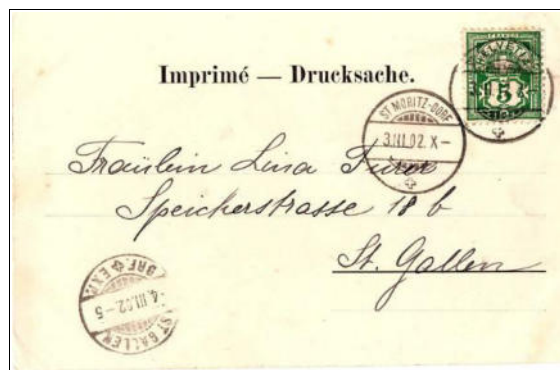 Imprimé — Drucksache.
HELVETIA
5
ST. MORITZ-DORF
3.III.02.X–
Fräulein Lina Furer
Speicherstrasse 18 b
St. Gallen
ST. GALLEN
4.III.02–5
BRF. EXP.